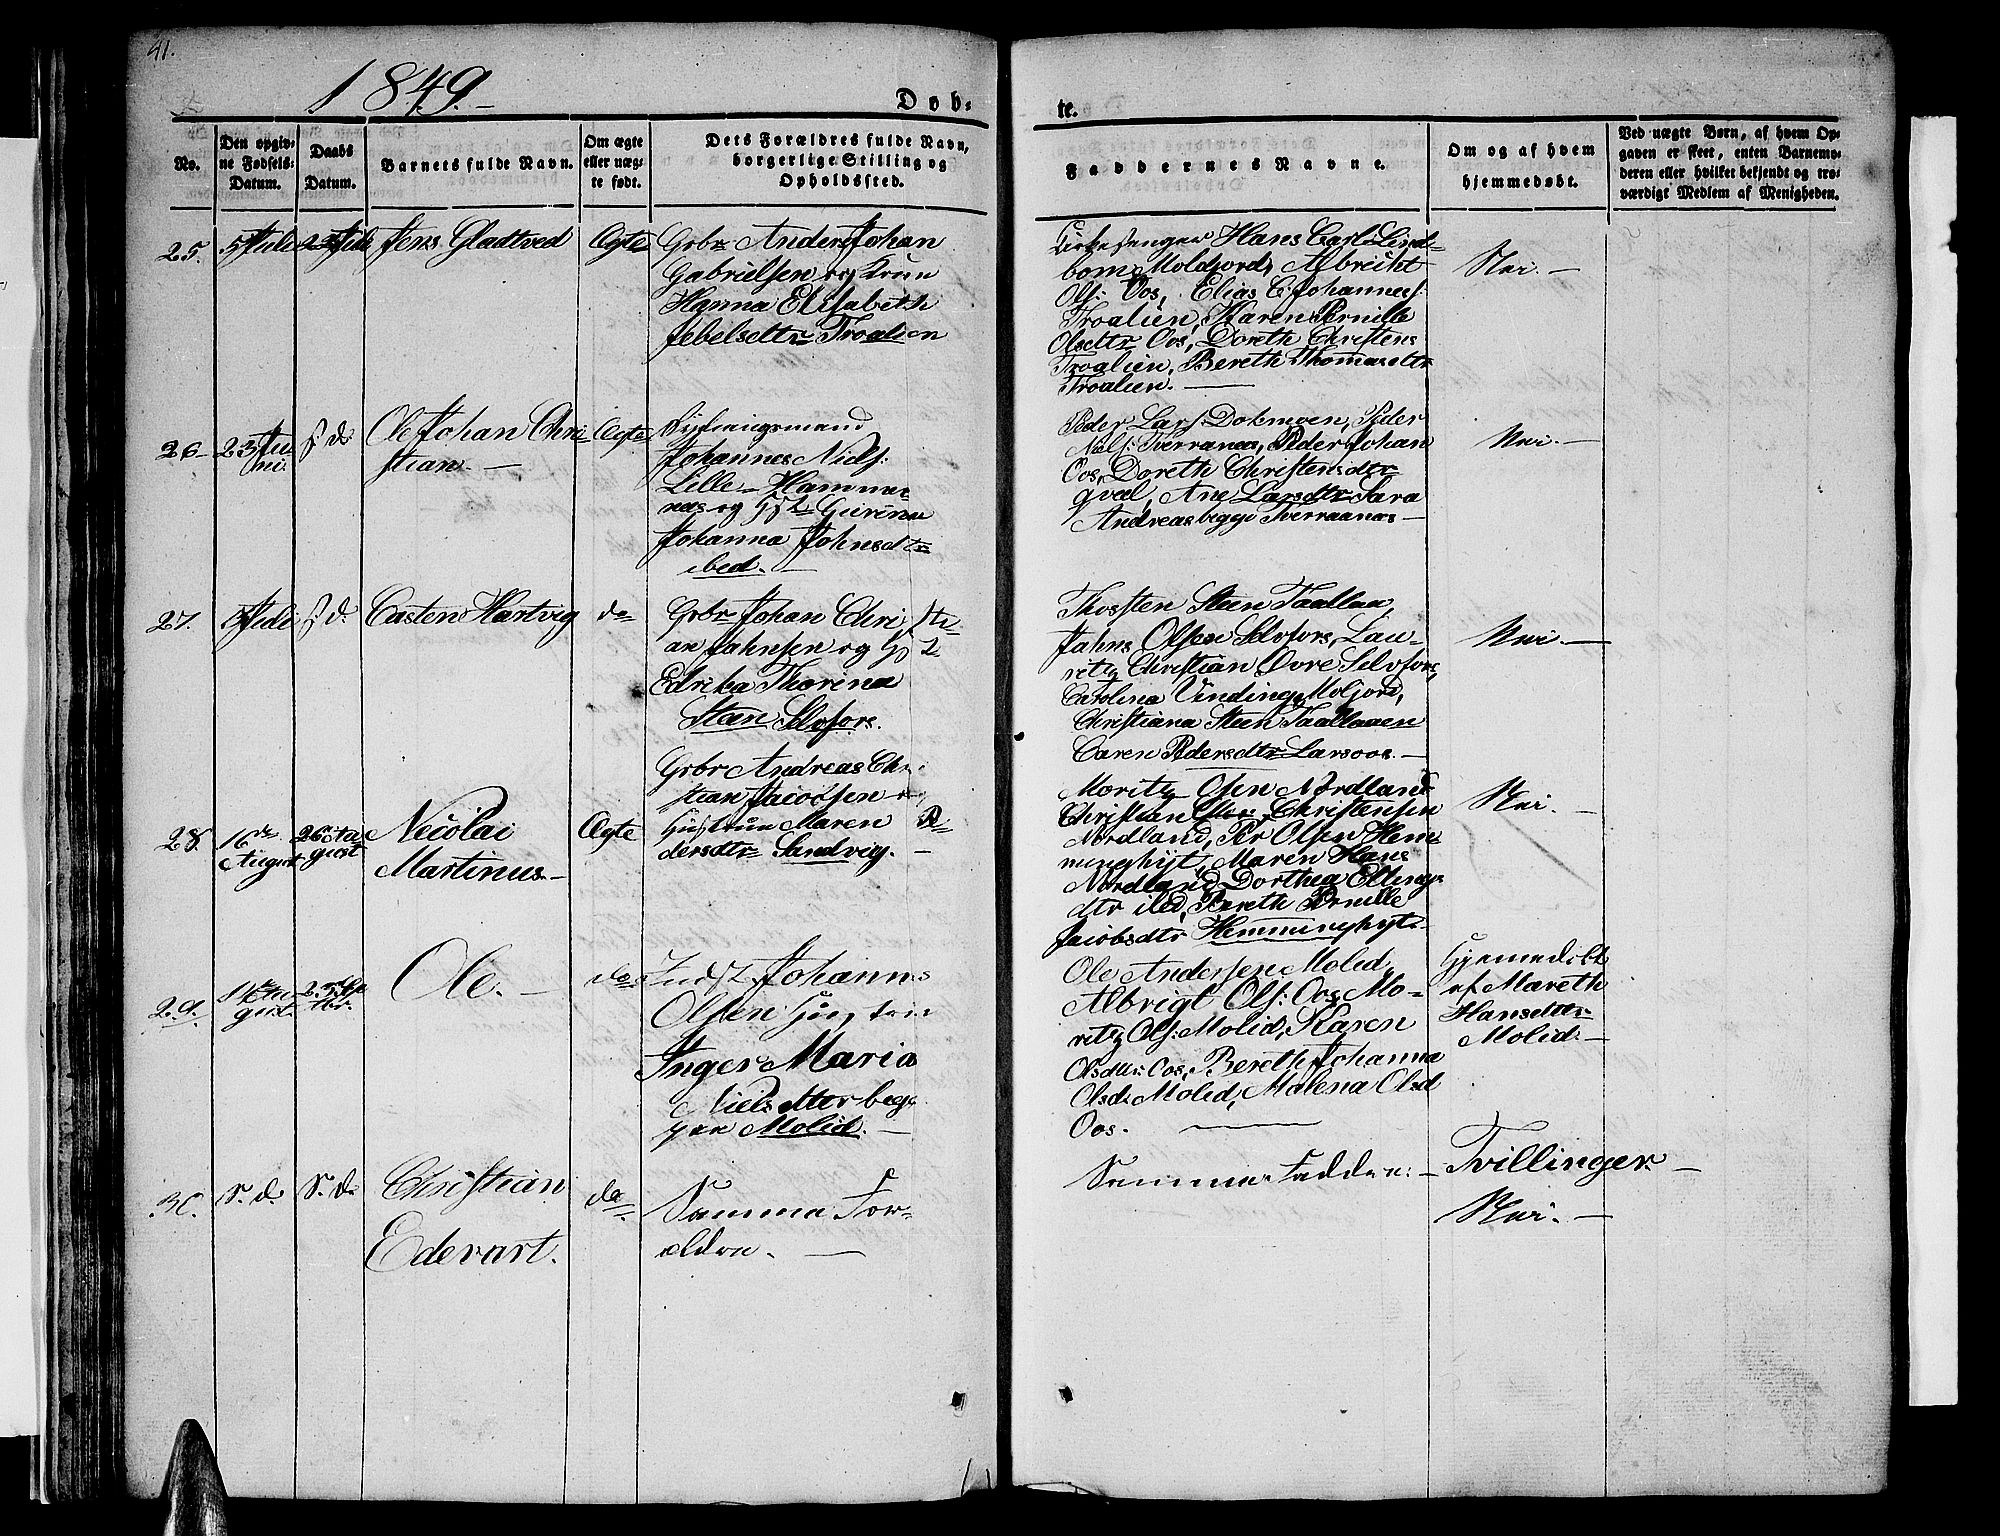 41.
1849.
Døb-
te.
No.
Den opgiv-
ne Fødsels-
Datum.
Daabs
Datum.
Barnets fulde Navn.
Om ægte
eller uæg-
te født.
Dets Forældres fulde Navn,
borgerlige Stilling og
Opholdssted.
Faddernes Navne.
Om og af hvem
hjemmedøbt.
Ved uægte Børn, af hvem Op-
gaven er skeet, enten Barnemo-
deren eller hvilket bekjendt og tro-
værdigt Medlem af Menigheden.
25.
5 Juli
Juli
Jens Gladtved
Ægte
Grbr Anders Johan
Gabrielsen og Kone
Hanna Elisabeth
Jebelsdttr Troalien
Kirkesanger Hans Carl Lind-
bom Moldjord, Albrecht
Ols: Oos, Elias C. Johannes:
Troalien, Karen Pernille
Olsdtr Oos, Doreth Christens
Troalien, Bereth Thomasdtr
Troalien.
Nei.
26
23 Ju-
ni
s. d.
Ole Johan Chri-
stian.
Ægte
Johannes Niels:
Lille-Hammer-
næs og Hst Gurina
Johanna Johnsdtr
ibed.
Peder Lars: Dokmoen, Peder
Nels: Tverranæs, Peder Johan
Oos, Doreth Christensdtr
Qvæl, Ane Larsdtr Sara
Andreas begge Tverraanæs
Nei.
27.
Juli
s. d.
Casten Hartvig
do
Grbr Johan Chri sti-
an Jahnsen og Hst
Edrika Thorina
Steen Selsfors.
Thorsten Steen Taallaa,
Jahns Olsen Selsfors, Lau-
ritz Christian Dore Selsfors,
Carolina Vinding Moljord,
Christiana Steen Taallaaen
Caren Pedersdtr Larsoos.
Nei.
28.
16de
August
26de Au-
gust
Necolai
Martinus
Ægte
Grbr Andreas Chri
stian Jacobsen og
Hustrue Maren Pe-
dersdtr Sandvig.
Moritz Olsen Nordland
Christian Christensen
Nordland, Per Olsen Hem-
minghyt, Maren Hans
Nordland, Dorthea Ellings
dtr ibd, Bereth Pernille
Jacobsdtr Hemminghyt.
Nei.
29.
gust
tbr.
Ole.
do
Indst Johannes
Olsen Hustrue
Inger Maria
Nielsdtter beg-
gen Molid.
Ole Andersen Molid,
Albrigt Ols: Oos, Mo-
ritz Ols: Molid, Karen
Olsdtr: Oos, Bereth Johanna
Olsd: Molid, Malena Olsd
Oos.
Hjemmedøbt
af Mareth
Hansdttr
Molid.
30.
S. d.
S. d.
Christian
Edevart.
do
Samma For-
ældre.
Samma Faddere:
Tvillinger.
Nei.